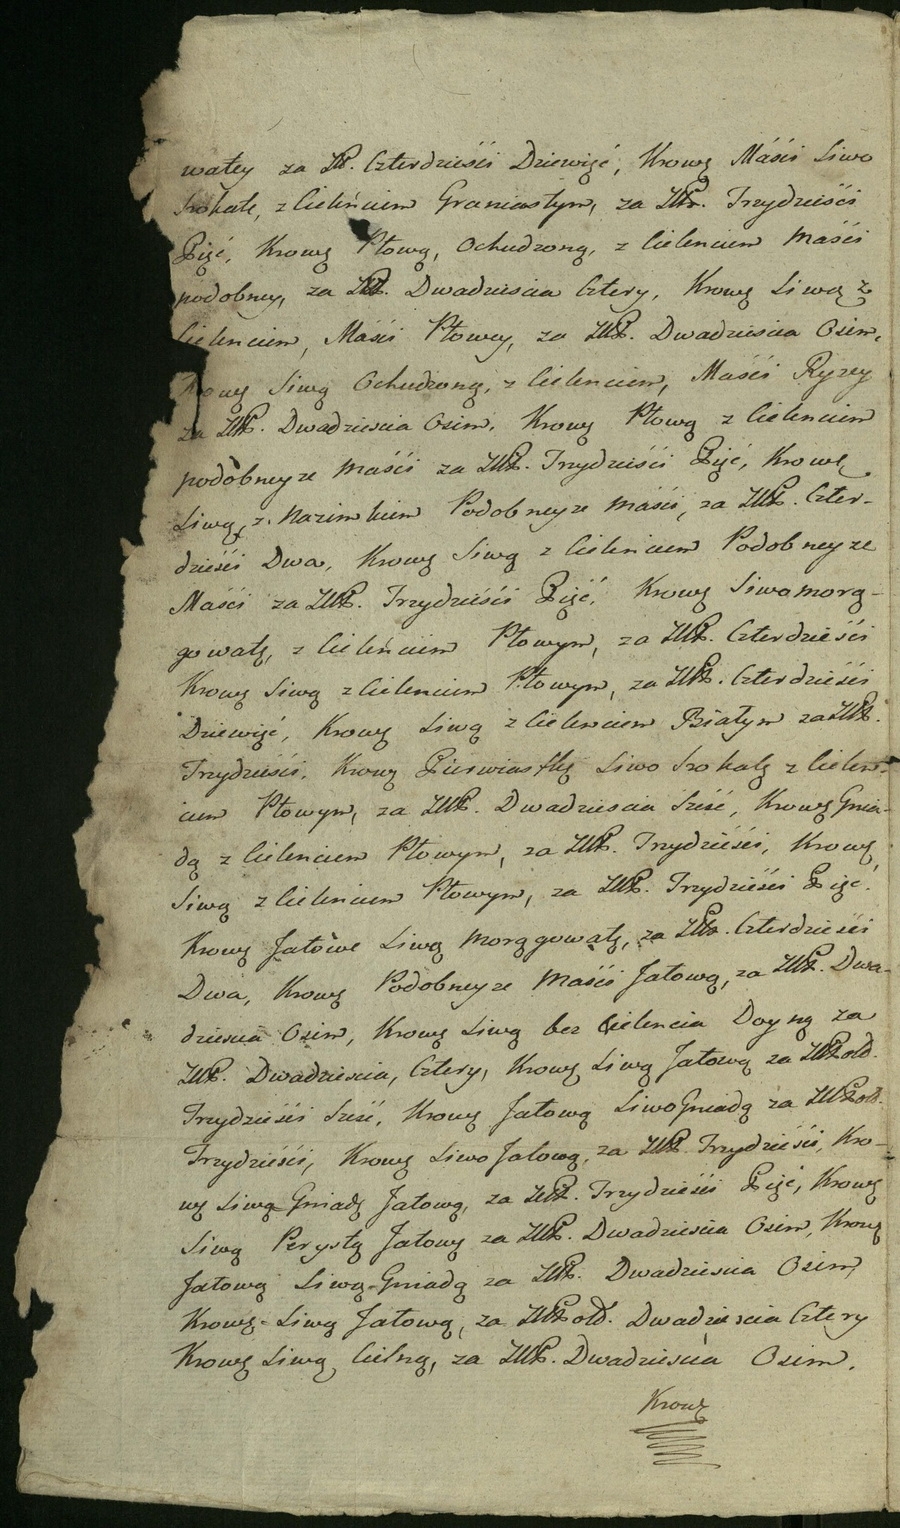 watey za ZłP. Czterdzieści Dziewięć, Krowę Máści Siwo
Srokate, z Cielęńciem Graniastym, za ZłP. Trzydzieści
Pięć, Krowę Płową, Ochudzoną, z Cielenciem Maści
podobney, za ZłP. Dwadziescia Cztery, Krowę Siwą z
Cielenciem, Maści Płowey, za ZłP. Dwadziescia Osim,
Krowę Siwą Ochudzoną, z Cielenciem, Maści Ryzey
za ZłP. Dwadziescia Osim, Krowę Płową z Cielenciem
podobneyze Maści za ZłP. Trzydzieści Pięć, Krowę
Siwą, z Nazimkiem Podobneyze Maści, za ZłP. Czter-
dzieści Dwa, Krowę Siwą z Cielenciem Podobneyze
Maści za ZłP. Trzydzieści Pięć, Krowę Siwamorą-
gowatą, z Cieleńciem Płowym, za ZłP. Czterdzieści
Krowę Siwą z Cielenciem Płowym, za ZłP. Czterdzieści
Dziewięć, Krowę Siwą z Cielenciem Białym za ZłP.
Trzydzieści, Krowę Pierwiastkę Siwo Srokatą z Cielen-
ciem Płowym, za ZłP. Dwadziescia Sześć, Krowę Gnia-
dą z Cielenciem Płowym, za ZłP. Trzydzieści, Krowę
Siwą z Cielenciem Płowym, za ZłP. Trzydzieści Pięć.
Krowę Jatowe Siwą morągowatą, za ZłP. Czterdzieści
Dwa, Krowę Podobneyze Maści Jatową, za ZłP. Dwa-
dziescia Osim, Krowę Siwą bez Cielencia Doyną za
ZłP. Dwadziescia, Cztery, Krowę Siwą Jatową za ZłPold.
Trzydzieści Sześć, Krowę Jatową Siwo Gniadą za ZłPold.
Trzydzieści, Krowę Siwo Jatową, za ZłP. Trzydzieści, Kro-
wę Siwą Gniadą Jatową, za ZłP. Trzydzieści Pięć, Krowę
Siwą Perystą Jatową za ZłP. Dwadziescia Osim, Krowę
Jatową Siwą-Gniadą za ZłP. Dwadziescia Osim
Krowę-Siwą Jatową, za ZłPold. Dwadziescia Cztery
Krowę Siwą Cielną, za ZłP. Dwadziescia Osim.
Krowę